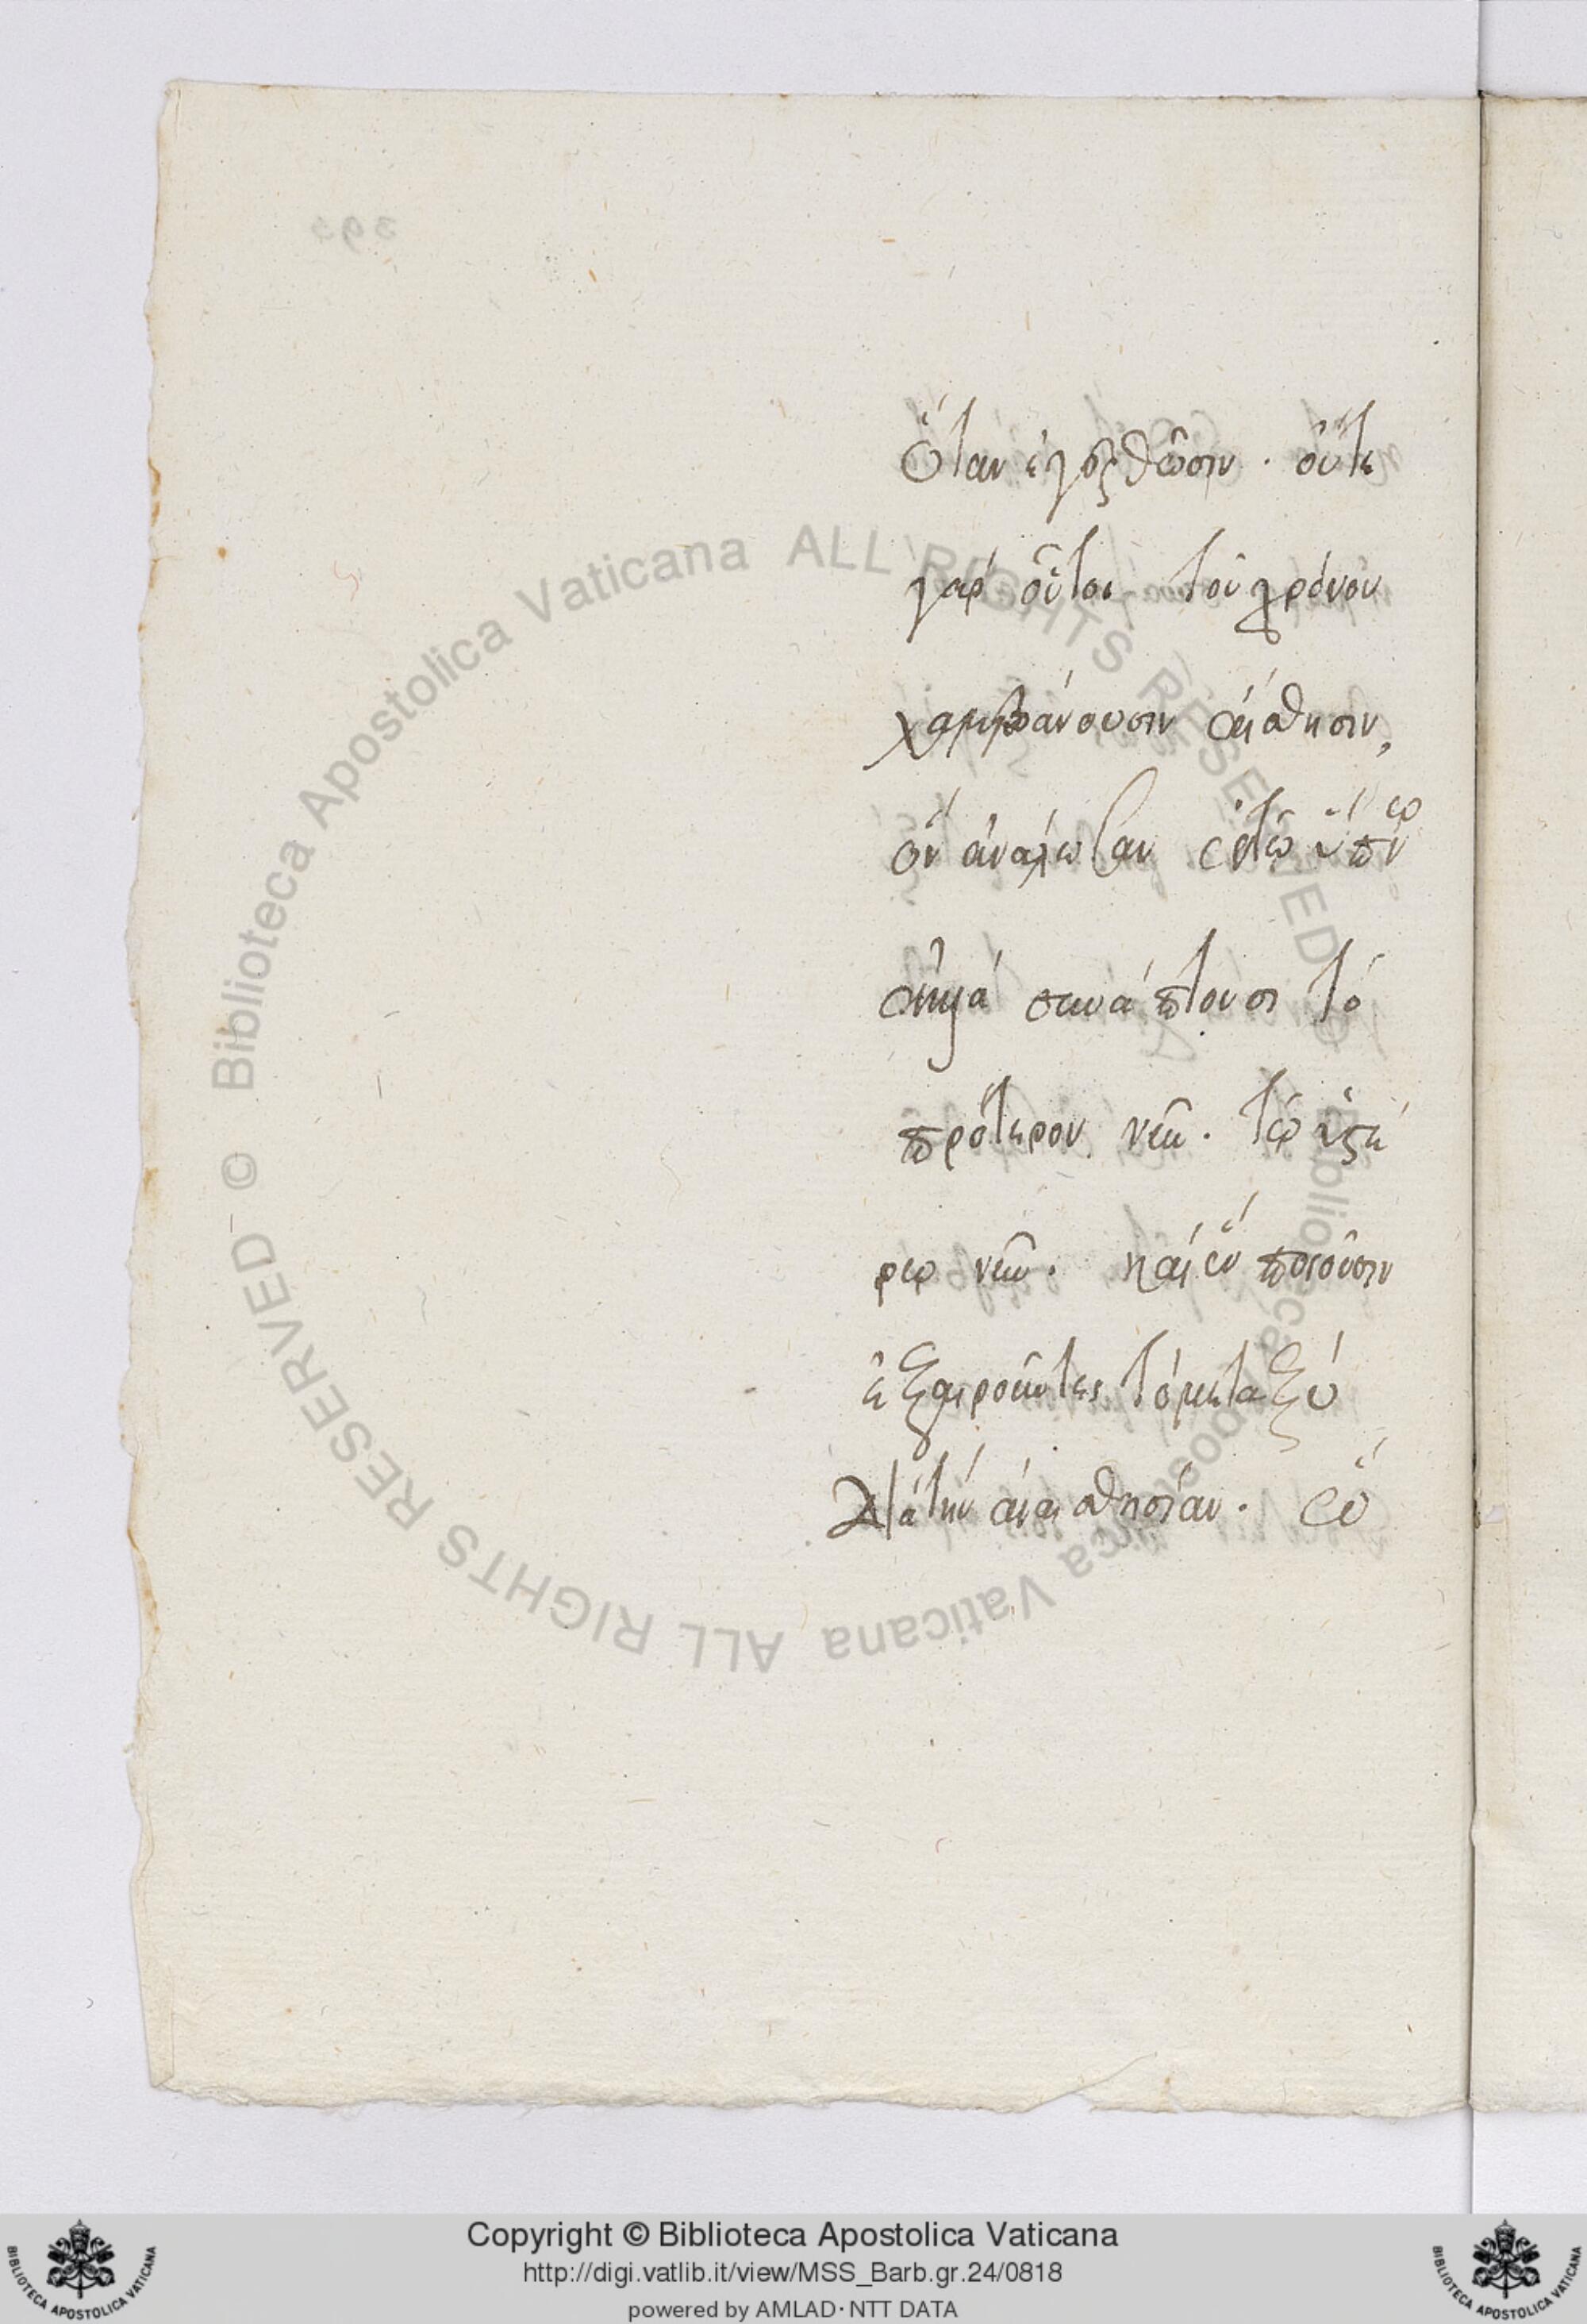 ὅταν ἐγερθῶσιν· οὔτε
γὰρ οὗτοι τοῦ χρόνου
λαμβάνουσιν αἴσθησιν,
ὃν ἀνάλωσαν ἐν τῷ ὕπνῳ
ἀλλὰ συνάπτουσι τὸ
πρότερον νῦν· τῷ ὑστέ
ρῳ νῦν· καὶ ἓν ποιοῦσιν
ἐξαιροῦντες τὸ μεταξὺ
διὰ τὴν ἀναισθησίαν·
Copyright © Biblioteca Apostolica Vaticana
http://digi.vatlib.it/view/MSS_Barb.gr.24/0818
powered by AMLAD · NTT DATA
Biblioteca Apostolica Vaticana ALL RIGHTS RESERVED ©
Biblioteca Apostolica Vaticana ALL RIGHTS RESERVED ©
BIBLIOTECA APOSTOLICA VATICANA
BIBLIOTECA APOSTOLICA VATICANA